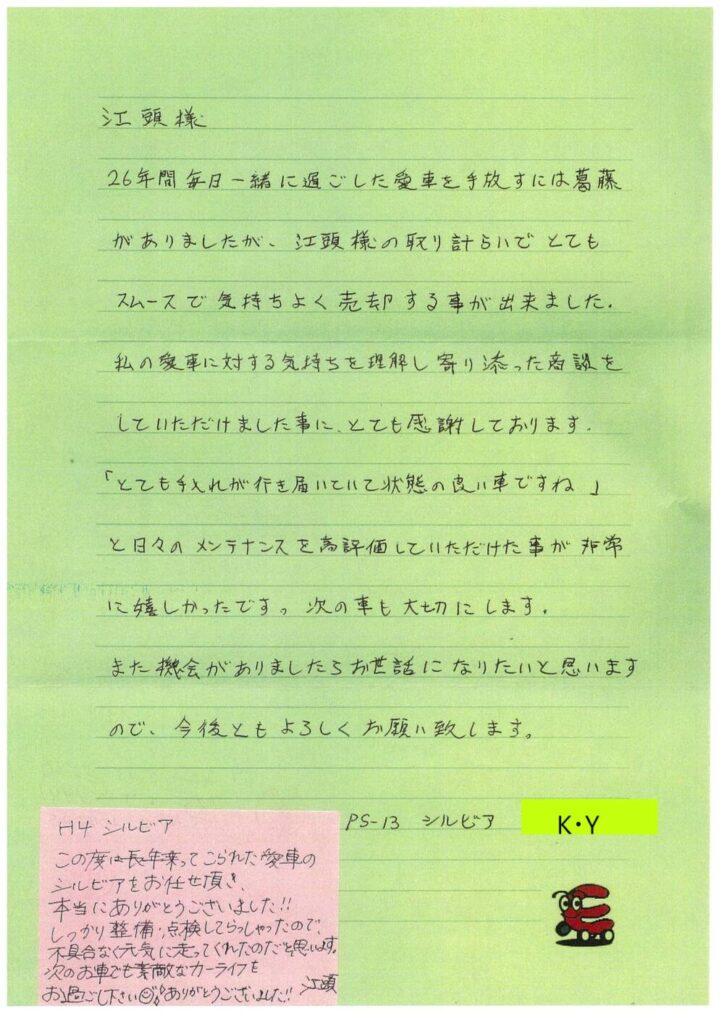 江頭様
26年間毎日一緒に過ごした愛車を手放すには葛藤
がありましたが、江頭様の取り計らいでとても
スムースで気持ちよく売却する事が出来ました.
私の愛車に対する気持ちを理解し寄り添った商談を
していただけました事に、とても感謝しております.
「とても手入れが行き届いていて状態の良い車ですね」
と日々のメンテナンスを高評価していただけた事が非常
に嬉しかったですっ 次の車も大切にします.
また機会がありましたらお世話になりたいと思います
ので、今後ともよろしくお願い致します。
PS-13 シルビア K・Y
H4 シルビア
この度は長年乗ってこられた愛車の
シルビアをお任せ頂き、
本当にありがとうございました!!
しっかり整備・点検してらっしゃったので、
不具合なく元気に走ってくれたのだと思います。
次のお車でも素敵なカーライフを
お過ごし下さい☺!ありがとうございました!! 江頭